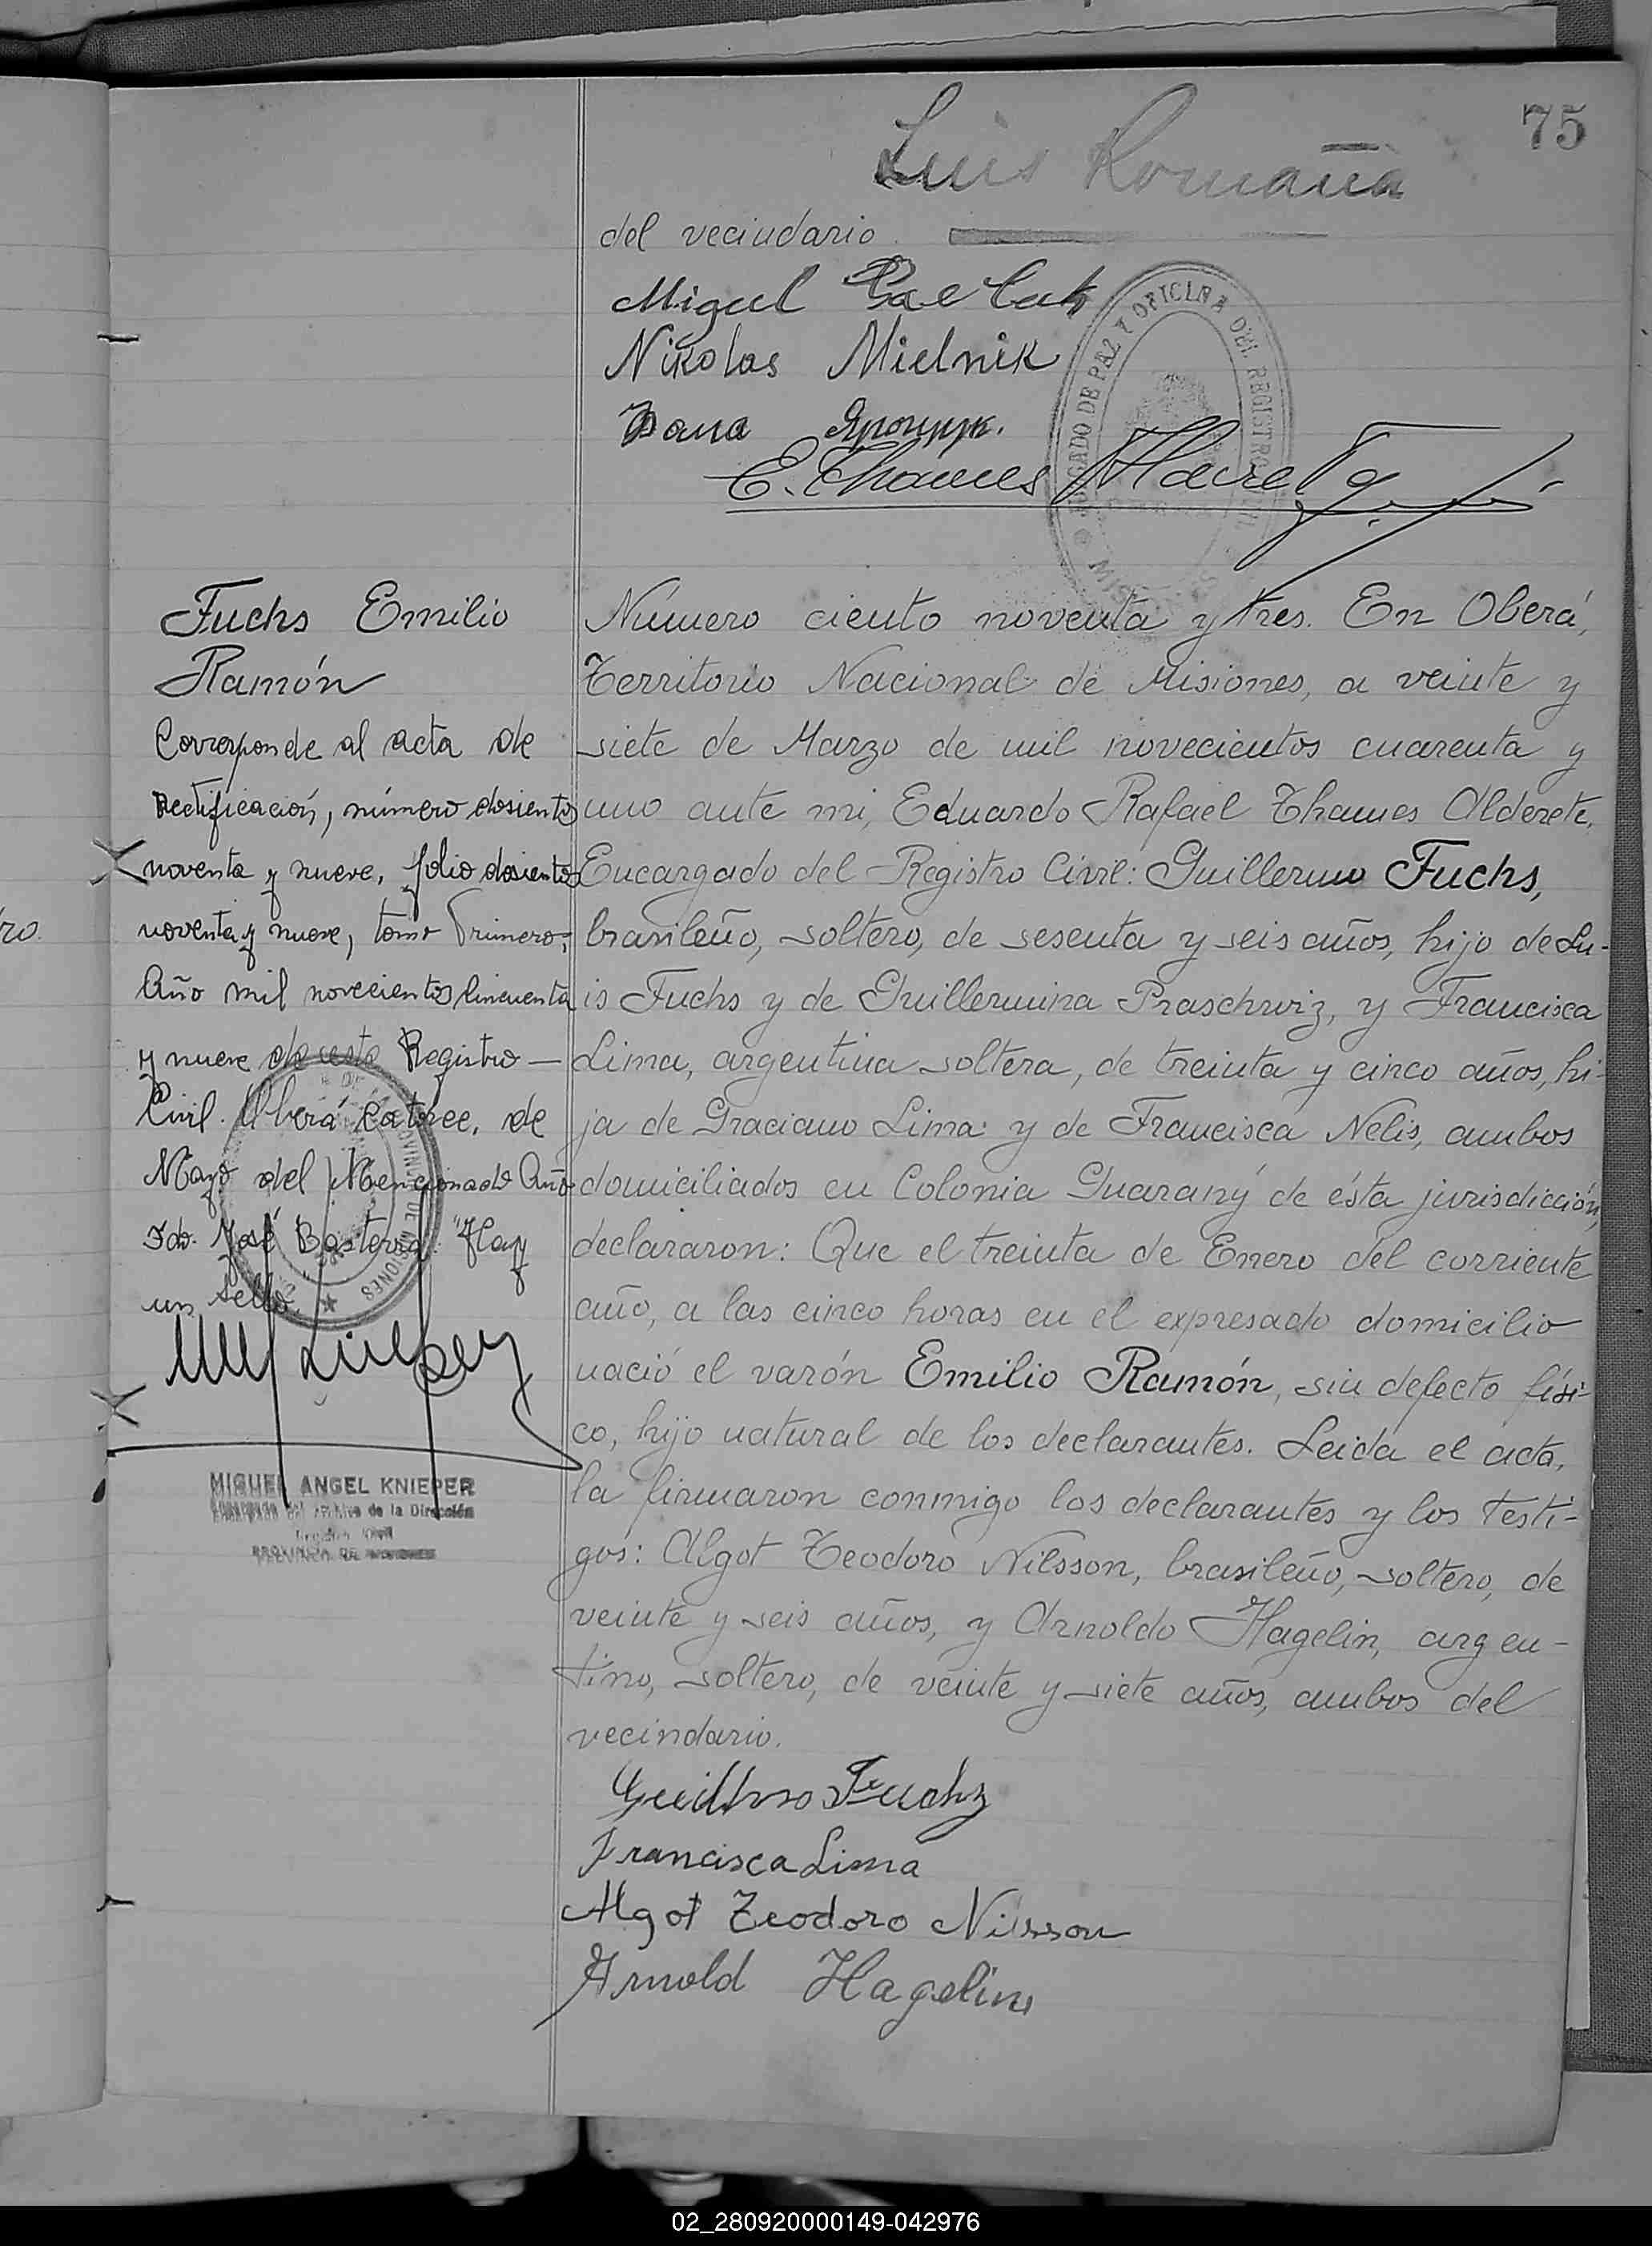 75
Luis Romaña
del vecindario
Miguel
Nikolas Mielnik
E. Thames Alderete
JUZGADO DE PAZ Y OFICINA DEL REGISTRO CIVIL
MISIONES
Fuchs Emilio
Ramón
Corresponde al acta de
Rectificación, número dosiento
noventa y nueve, folio dosientos
noventa y nueve, tomo Primero,
Año mil novecientos cincuenta
y nueve de este Registro —
Civil. Oberá catorce, de
Mayo del Mencionado Año
Fdo. José Basterra. "Hay
un sello
MIGUEL ANGEL KNIEPER
Encargado del Archivo de la Dirección
Registro Civil
PROVINCIA DE MISIONES
Número ciento noventa y tres. En Oberá,
Territorio Nacional de Misiones, a veinte y
siete de Marzo de mil novecientos cuarenta y
uno ante mi, Eduardo Rafael Thames Alderete,
Encargado del Registro Civil: Guillermo Fuchs,
brasileño, soltero, de sesenta y seis años, hijo de Lu-
is Fuchs y de Guillermina Praschwiz, y Francisca
Lima, argentina soltera, de treinta y cinco años, hi-
ja de Graciano Lima y de Francisca Nelis, ambos
domiciliados en Colonia Guarany de ésta jurisdicción,
declararon: Que el treinta de Enero del corriente
año, a las cinco horas en el expresado domicilio
nació el varón Emilio Ramón, sin defecto físi-
co, hijo natural de los declarantes. Leida el acta,
la firmaron conmigo los declarantes y los testi-
gos: Algot Teodoro Nilsson, brasileño, soltero, de
veinte y seis años, y Arnoldo Hagelin, argen-
tino, soltero, de veinte y siete años, ambos del
vecindario.
Guillermo Fuchz
Francisca Lima
Algot Teodoro Nilsson
Arnold Hagelin
02_280920000149-042976